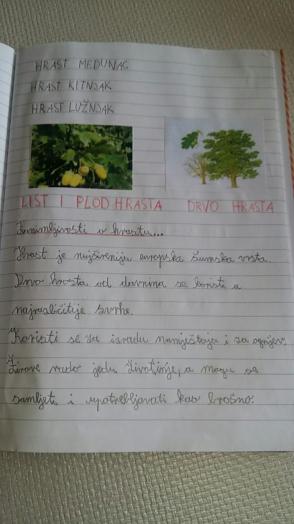 HRAST MEDUNAC
HRAST KITNJAK
HRAST LUŽNJAK
LIST I PLOD HRASTA DRVO HRASTA
Zanimljivosti o hrastu...
Hrast je najšireniju europska šumska vrsta.
Drvo hrasta od davnina se koristi u
najrazličitije svrhe.
Koristi se za izradu namještaja i za ogrjev.
Žirove rado jedu životinje, a mogu se
samljeti i upotrebljavati kao brašno.